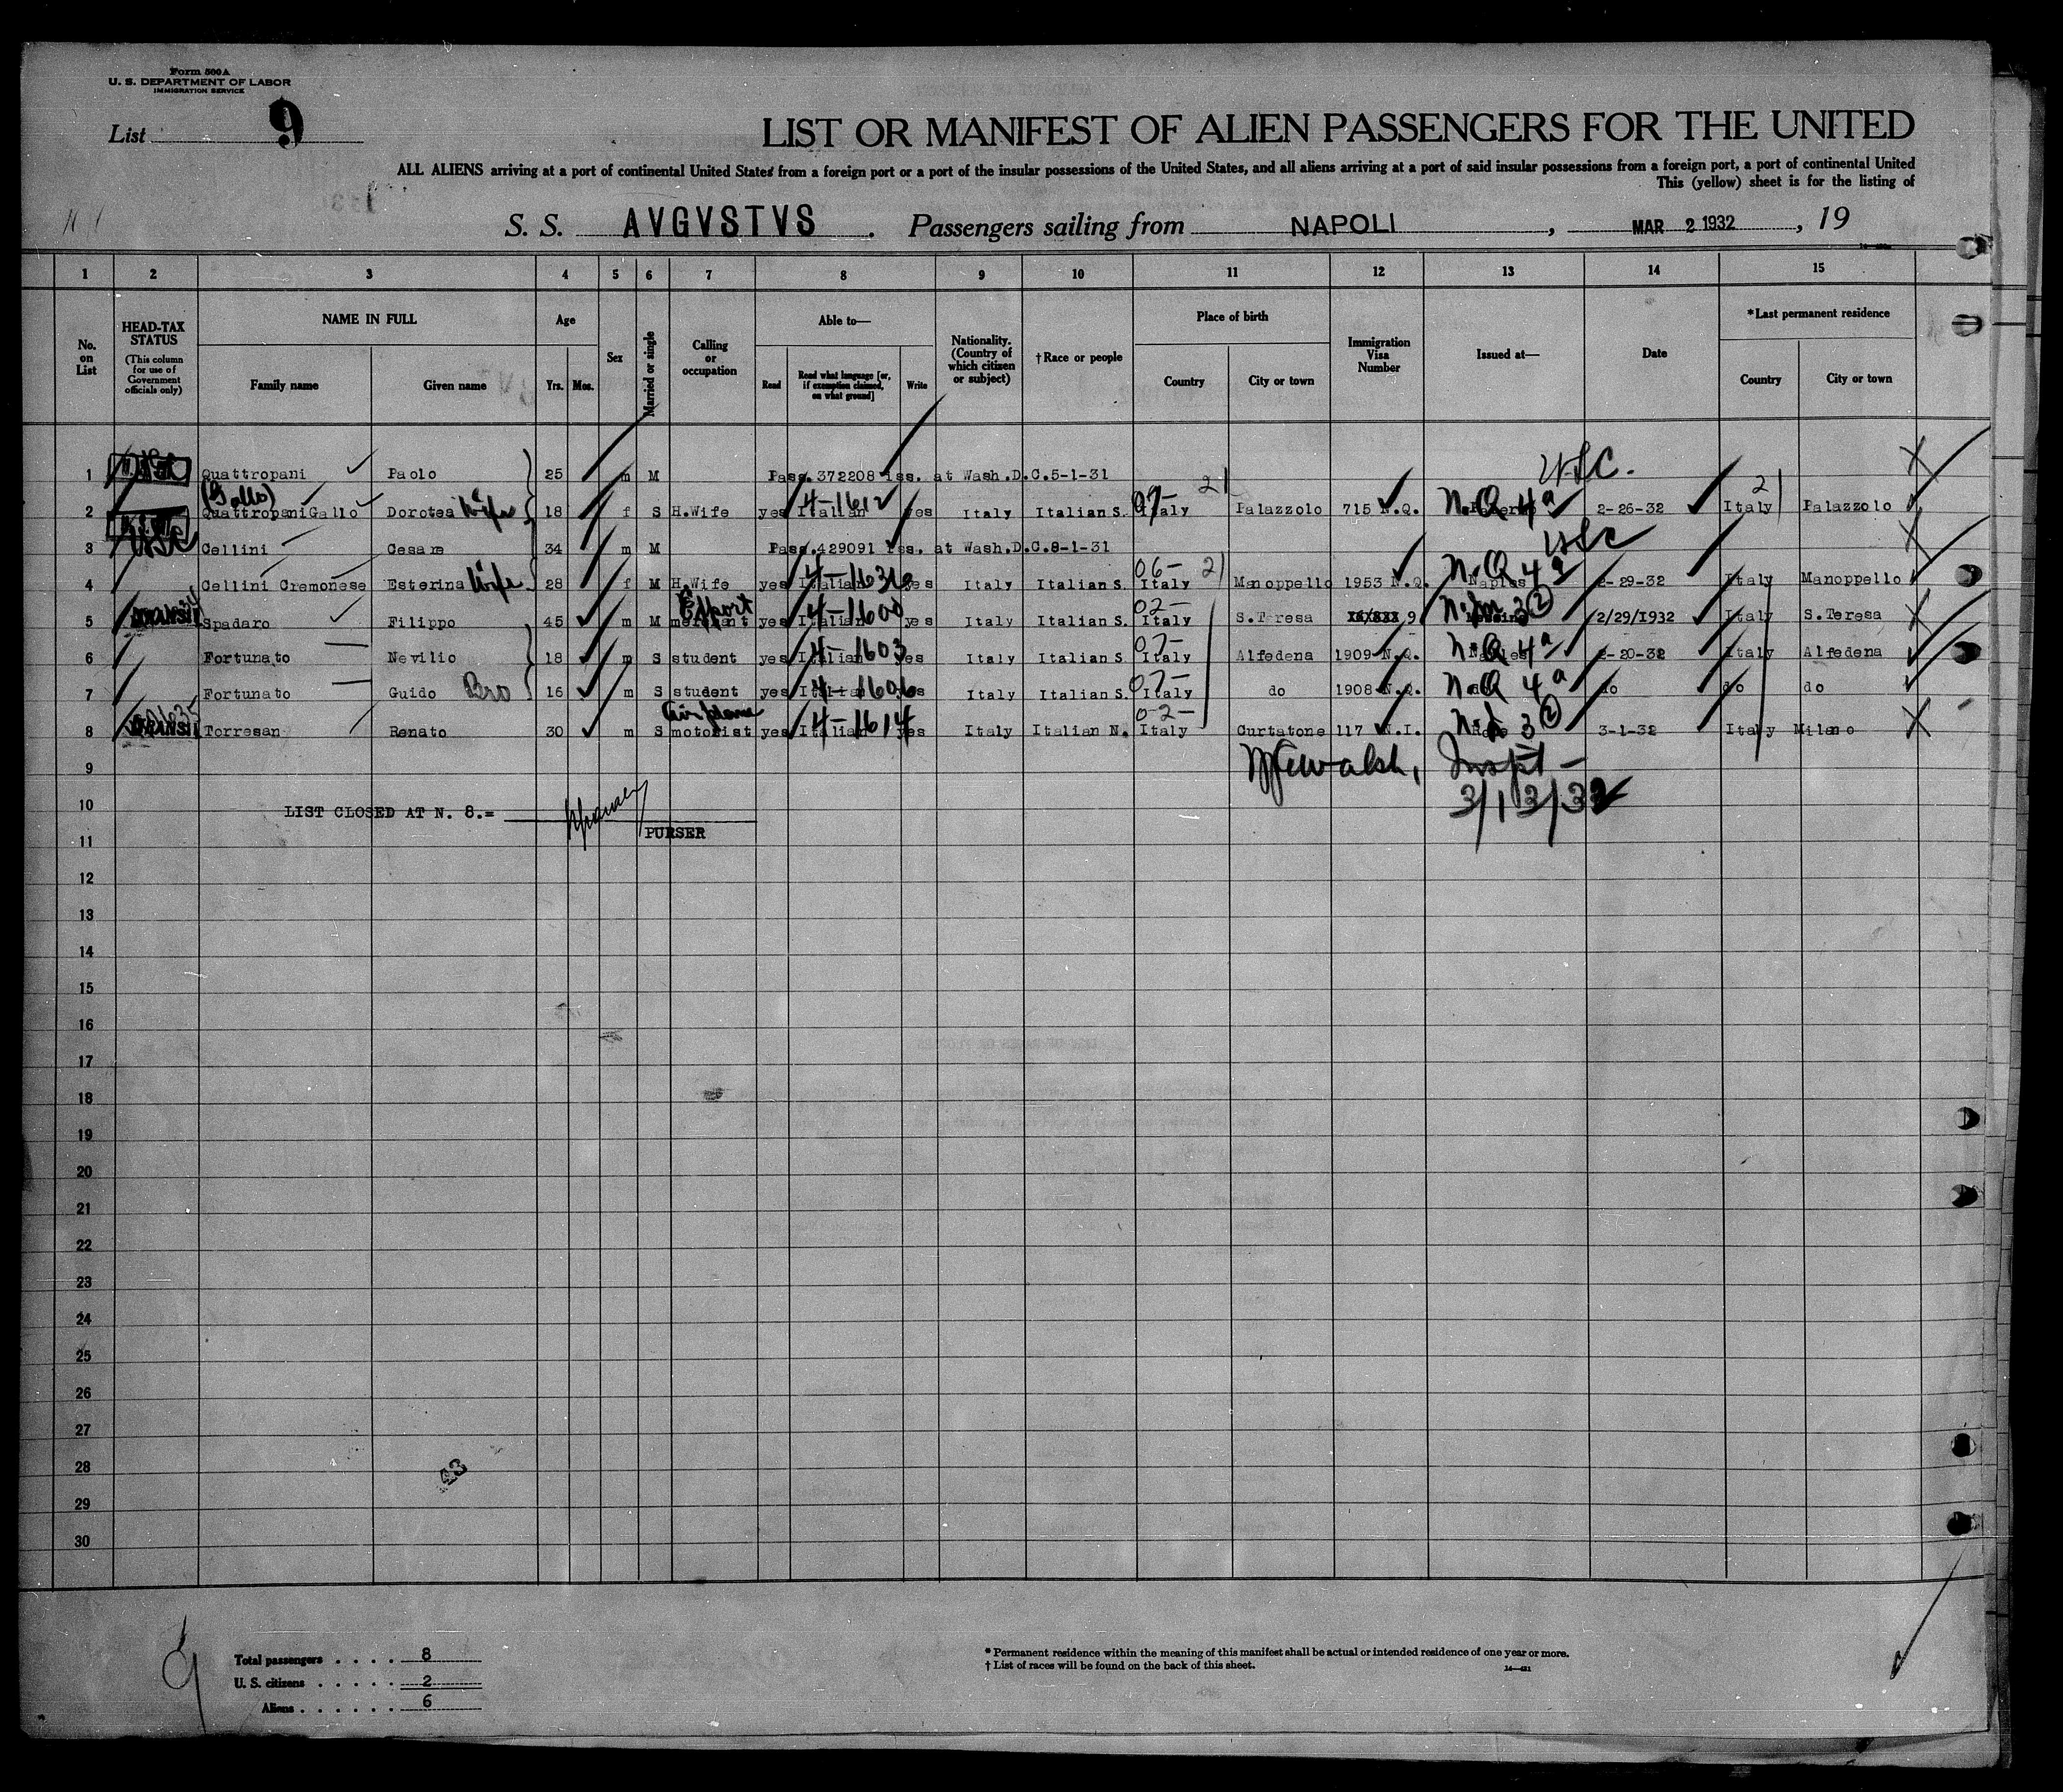 Form 500A
U. S. DEPARTMENT OF LABOR
IMMIGRATION SERVICE
List 9
LIST OR MANIFEST OF ALIEN PASSENGERS FOR THE UNITED
ALL ALIENS arriving at a port of continental United States from a foreign port or a port of the insular possessions of the United States, and all aliens arriving at a port of said insular possessions from a foreign port, a port of continental United
This (yellow) sheet is for the listing of
S. S. AVGVSTVS . Passengers sailing from NAPOLI , MAR 2 1932 , 19
1 2 3 4 5 6 7 8 9 10 11 12 13 14 15
No. on List
HEAD-TAX STATUS
(This column for use of Government officials only)
NAME IN FULL
Family name Given name
Age
Yrs. Mos.
Sex
Married or single
Calling or occupation
Able to—
Read Read what language [or, if exemption claimed, on what ground] Write
Nationality. (Country of which citizen or subject)
†Race or people
Place of birth
Country City or town
Immigration Visa Number
Issued at—
Date
*Last permanent residence
Country City or town
USC.
1 Quattropani Paolo 25 m M Pass. 372208 iss. at Wash.D.C.5-1-31
(Gallo) 4-1612 07- 21 21
2 QuattropaniGallo Dorotea Wife 18 f S H.Wife yes Italian yes Italy Italian S. Italy Palazzolo 715 N.Q. N.Q 4a 2-26-32 Italy Palazzolo
USC
3 USC Cellini Cesare 34 m M Pass. 429091 iss. at Wash.D.C.8-1-31
4-1631 06- 21 N.Q 4a
4 Cellini Cremonese Esterina Wife 28 f M H.Wife yes Italian yes Italy Italian S. Italy Manoppello 1953 N.Q. Naples 2-29-32 Italy Manoppello
Export 4-1600 02- 3 (2)
5 TRANSIT Spadaro Filippo 45 m M merchant yes Italian yes Italy Italian S. Italy S.Teresa 9 Messina 2/29/1932 Italy S.Teresa
4-1603 07- N.Q 4a
6 Fortunato Nevilio 18 m S student yes Italian yes Italy Italian S Italy Alfedena 1909 N.Q. Naples 2-20-32 Italy Alfedena
4-1606 07- N.Q 4a
7 Fortunato Guido Bro 16 m S student yes Italian yes Italy Italian S. Italy do 1908 N.Q. do do do
Airplane 4-1614 02- 3 (2)
8 TRANSIT Torresan Renato 30 m S motorist yes Italian yes Italy Italian N. Italy Curtatone 117 N.I. Rome 3-1-32 Italy Milano
9 Walsh, Inspt -
10 LIST CLOSED AT N. 8.= 3/13/32
PURSER
11
12
13
14
15
16
17
18
19
20
21
22
23
24
25
26
27
28 43
29
30
9
Total passengers . . . . 8
U. S. citizens . . . . . 2
Aliens . . . . . . 6
* Permanent residence within the meaning of this manifest shall be actual or intended residence of one year or more.
† List of races will be found on the back of this sheet.
14—421